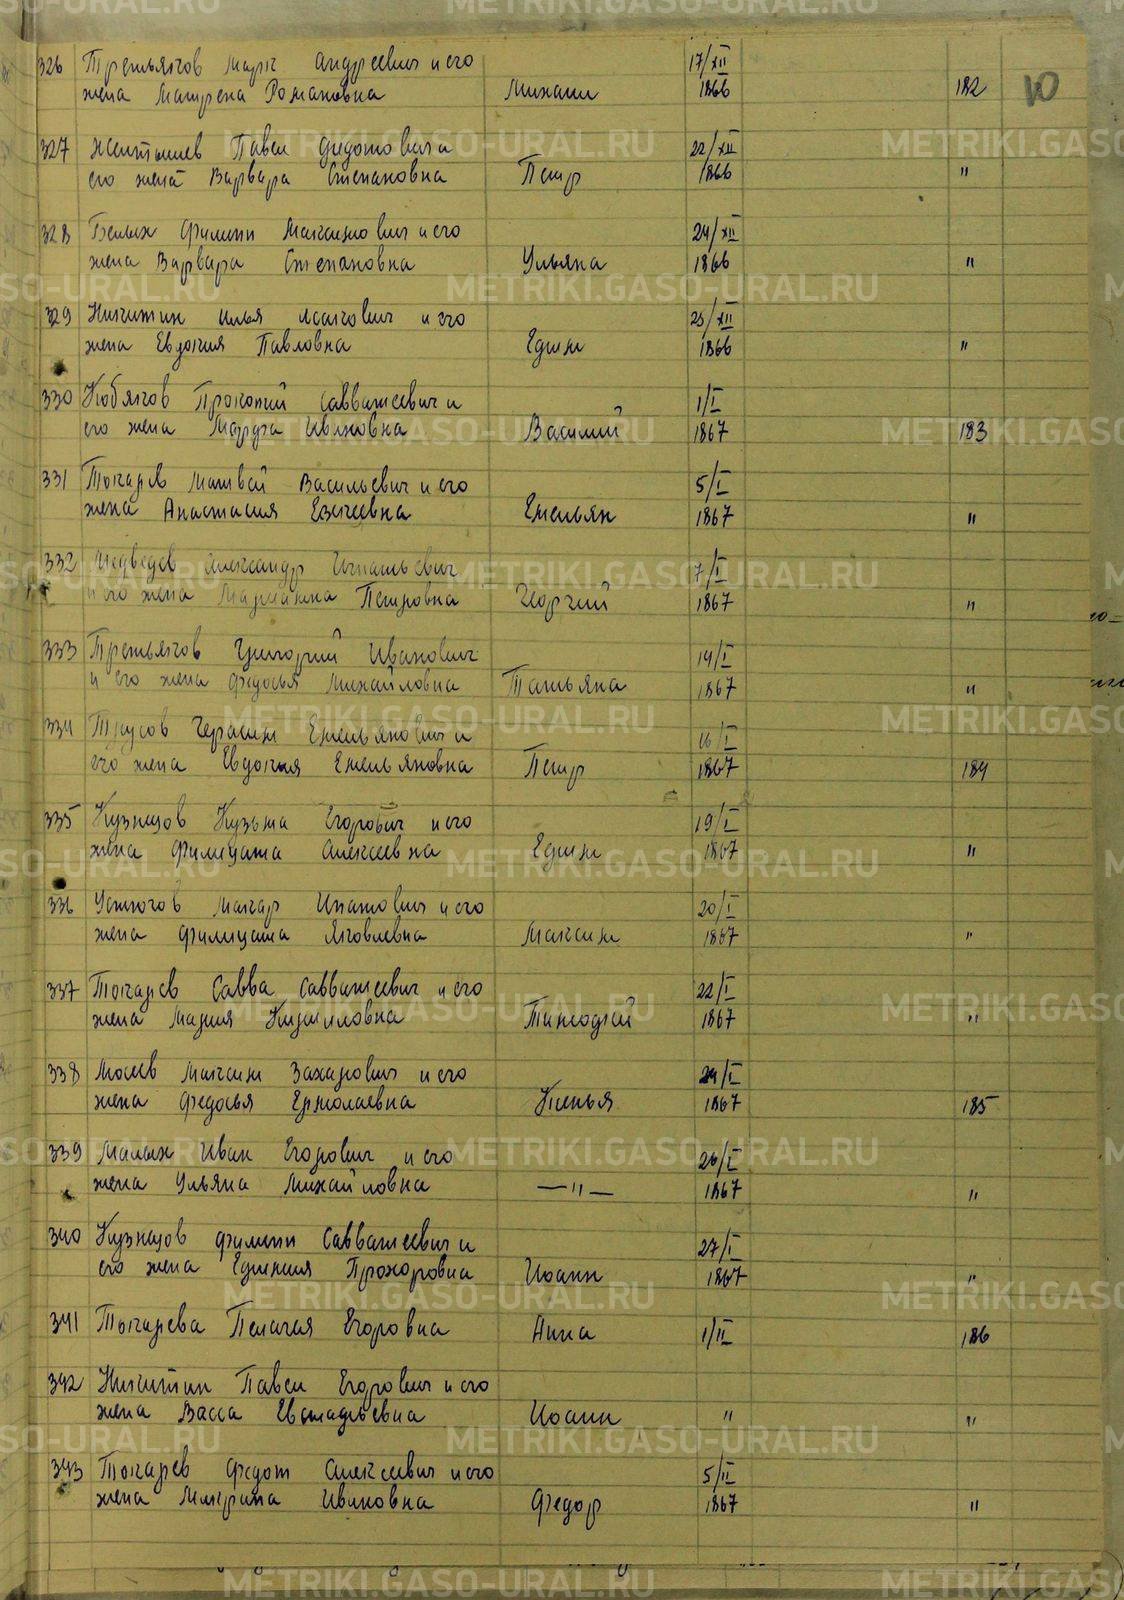 326 Третьяков Марк Андреевич и его 17/XII
жена Матрена Романовна Михаил 1866 182 10
327 Желтышев Павел Федотович и 22/XII
его жена Варвара Степановна Петр 1866 "
328 Белых Филипп Максимович и его 24/XII
жена Варвара Степановна Ульяна 1866 "
329 Никитин Илья Исакович и его 25/XII
жена Евдокия Павловна Ефим 1866 "
330 Кобяков Прокопий Савватеевич и 1/I
его жена Марфа Ивановна Василий 1867 183
331 Токарев Матвей Васильевич и его 5/I
жена Анастасия Евсеевна Емельян 1867 "
332 Медведев Александр Игнатьевич 7/I
и его жена Марианна Петровна Георгий 1867 "
333 Третьяков Григорий Иванович 14/I
и его жена Федосья Михайловна Татьяна 1867 "
334 Трусов Герасим Емельянович и 16/I
его жена Евдокия Емельяновна Петр 1867 184
335 Кузнецов Кузьма Егорович и его 19/I
жена Филицата Алексеевна Ефим 1867 "
336 Устюгов Макар Ипатович и его 20/I
жена Филицата Яковлевна Максим 1867 "
337 Токарев Савва Савватеевич и его 22/I
жена Мария Кирилловна Тимофей 1867 "
338 Мосеев Максим Захарович и его 24/I
жена Федосья Ермолаевна Ксенья 1867 185
339 Малых Иван Егорович и его 26/I
жена Ульяна Михайловна —"— 1867 "
340 Кузнецов Филипп Савватеевич и 27/I
его жена Ефимия Прохоровна Иоанн 1867 "
341 Токарева Пелагея Егоровна Анна 1/II 186
342 Никитин Павел Егорович и его
жена Васса Евстафьевна Иоанн " "
343 Токарев Федот Алексеевич и его 5/II
жена Ивановна Федор 1867 "
METRIKI.GASO-URAL.RU